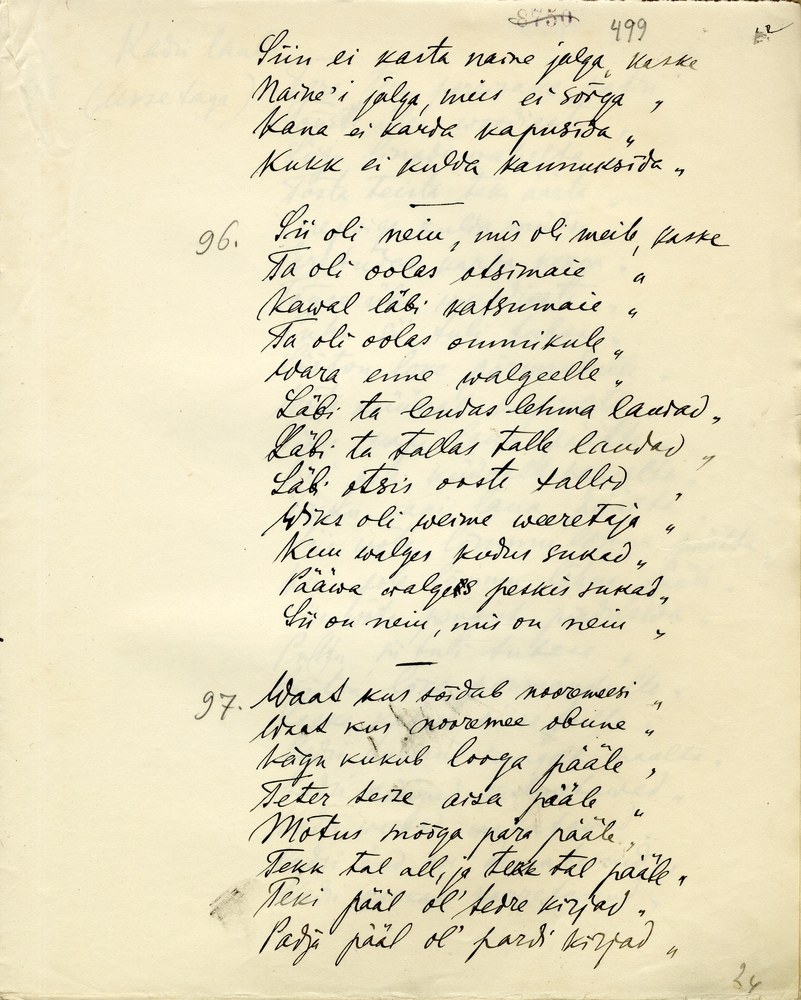 8750 499
Siin ei kasta naine jalga, kaske
Naine'i jalga, meis ei sõrga "
Kana ei karda kapusida "
Kukk ei kulda kannuksida "
96. Sii oli nein, mis oli meile, kaske
Ta oli oolas otsimaie "
Kawal läbi katsumaie "
Ta oli oolas ommikule "
Wara enne walgeelle "
Läbi ta lendas lehma laudad "
Läbi ta tallas talle laudad "
Läbi otsis ooste tallid "
Wiks oli weime weeretaja "
Kuu walges kudus sukad "
Pääwa walges peskis sukad "
Sii on nein, mis on nein "
97. Waat kus sõidab nooremeesi "
Waat kus nooremee obune "
Kägu kukub looga pääle "
Teter seize aisa pääle "
Mõtus mõõga pära pääle "
Tekk tal all, ja tekk tal pääle "
Teki pääl ol' tedre kirjad "
Padja pääl ol' pardi kirjad "
24